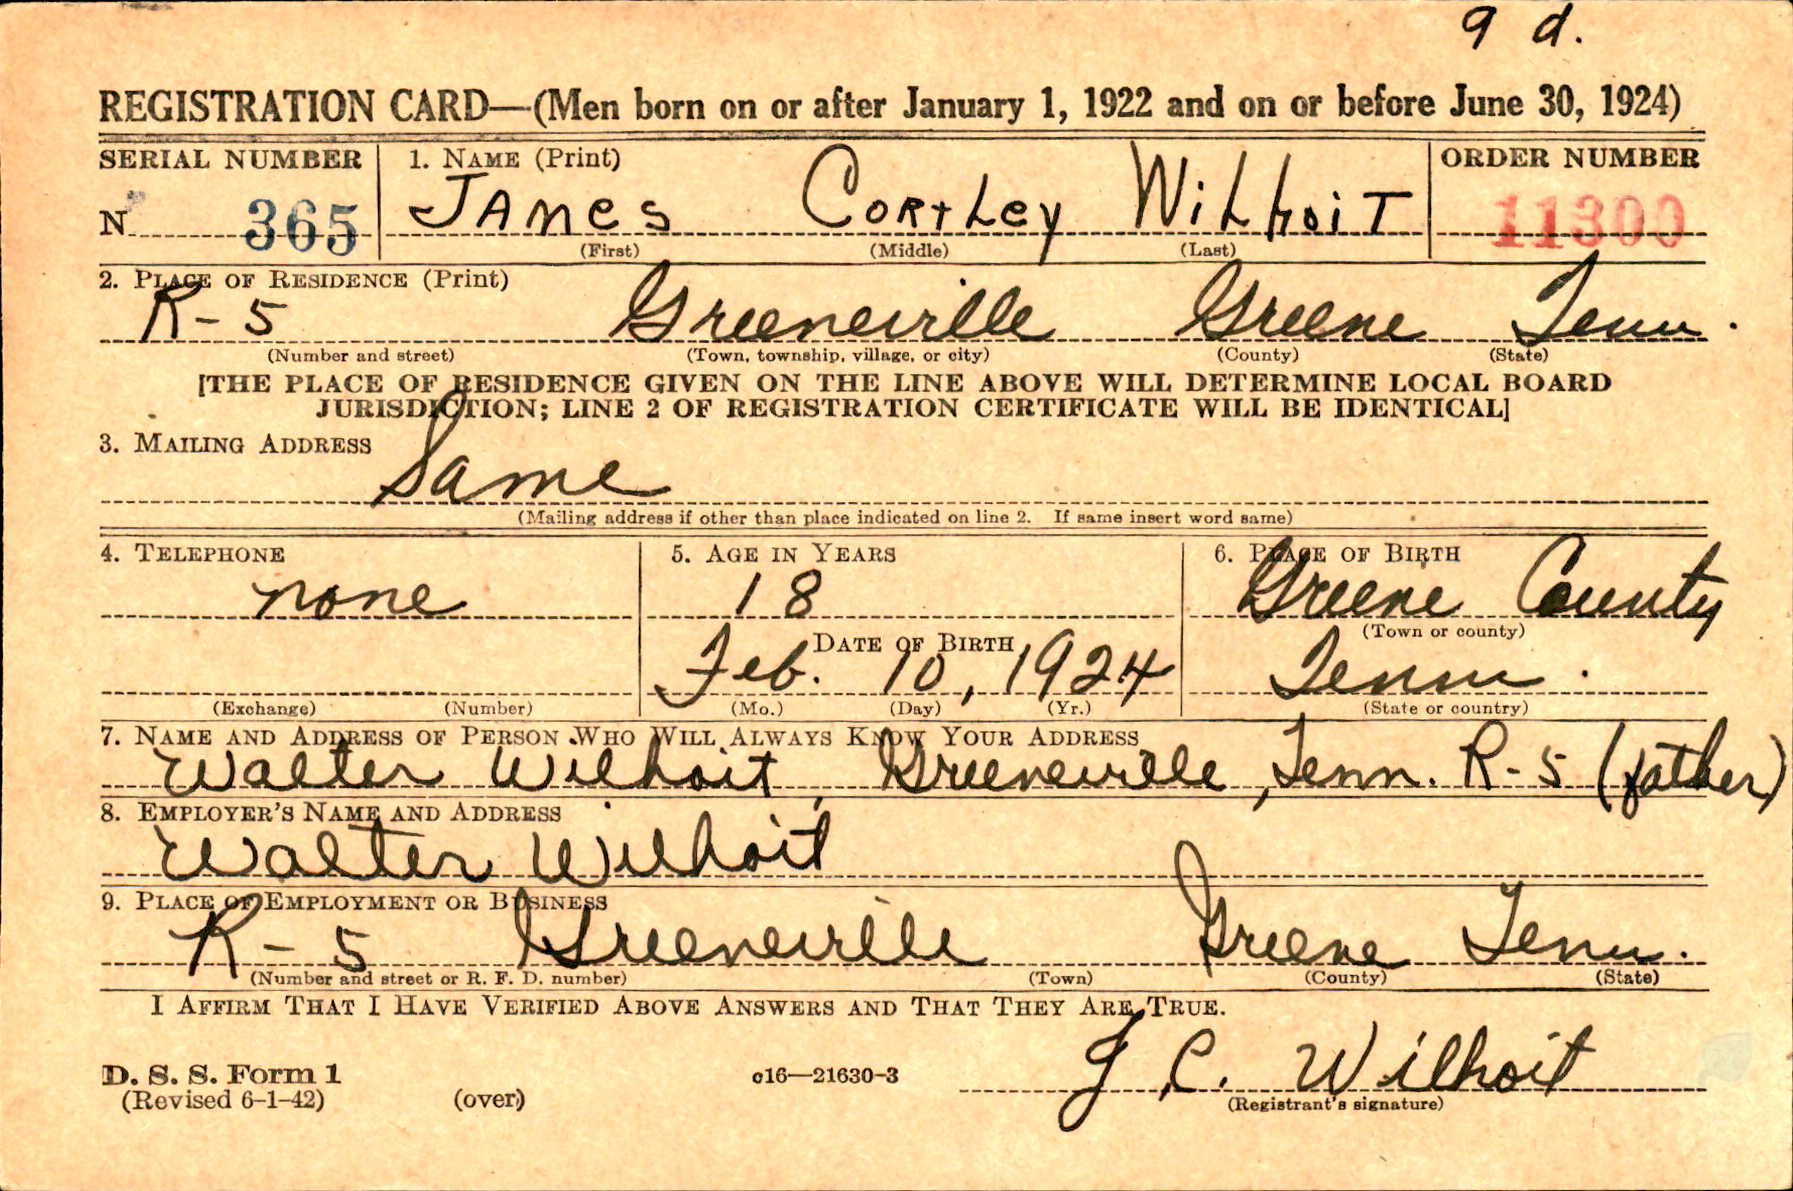 9 d.
REGISTRATION CARD—(Men born on or after January 1, 1922 and on or before June 30, 1924)
SERIAL NUMBER 1. NAME (Print) ORDER NUMBER
N 365 JAMES CORTLEY WILHOIT 11300
(First) (Middle) (Last)
2. PLACE OF RESIDENCE (Print)
R-5 Greeneville Greene Tenn.
(Number and street) (Town, township, village, or city) (County) (State)
[THE PLACE OF RESIDENCE GIVEN ON THE LINE ABOVE WILL DETERMINE LOCAL BOARD
JURISDICTION; LINE 2 OF REGISTRATION CERTIFICATE WILL BE IDENTICAL]
3. MAILING ADDRESS
Same
(Mailing address if other than place indicated on line 2. If same insert word same)
4. TELEPHONE 5. AGE IN YEARS 6. PLACE OF BIRTH
none 18 Greene County
DATE OF BIRTH (Town or county)
Feb. 10, 1924 Tenn.
(Exchange) (Number) (Mo.) (Day) (Yr.) (State or country)
7. NAME AND ADDRESS OF PERSON WHO WILL ALWAYS KNOW YOUR ADDRESS
Walter Wilhoit, Greeneville, Tenn. R-5 (father)
8. EMPLOYER'S NAME AND ADDRESS
Walter Wilhoit
9. PLACE OF EMPLOYMENT OR BUSINESS
R-5 Greeneville Greene Tenn.
(Number and street or R. F. D. number) (Town) (County) (State)
I AFFIRM THAT I HAVE VERIFIED ABOVE ANSWERS AND THAT THEY ARE TRUE.
D. S. S. Form 1
(Revised 6-1-42) (over) c16—21630-3 J. C. Wilhoit
(Registrant's signature)